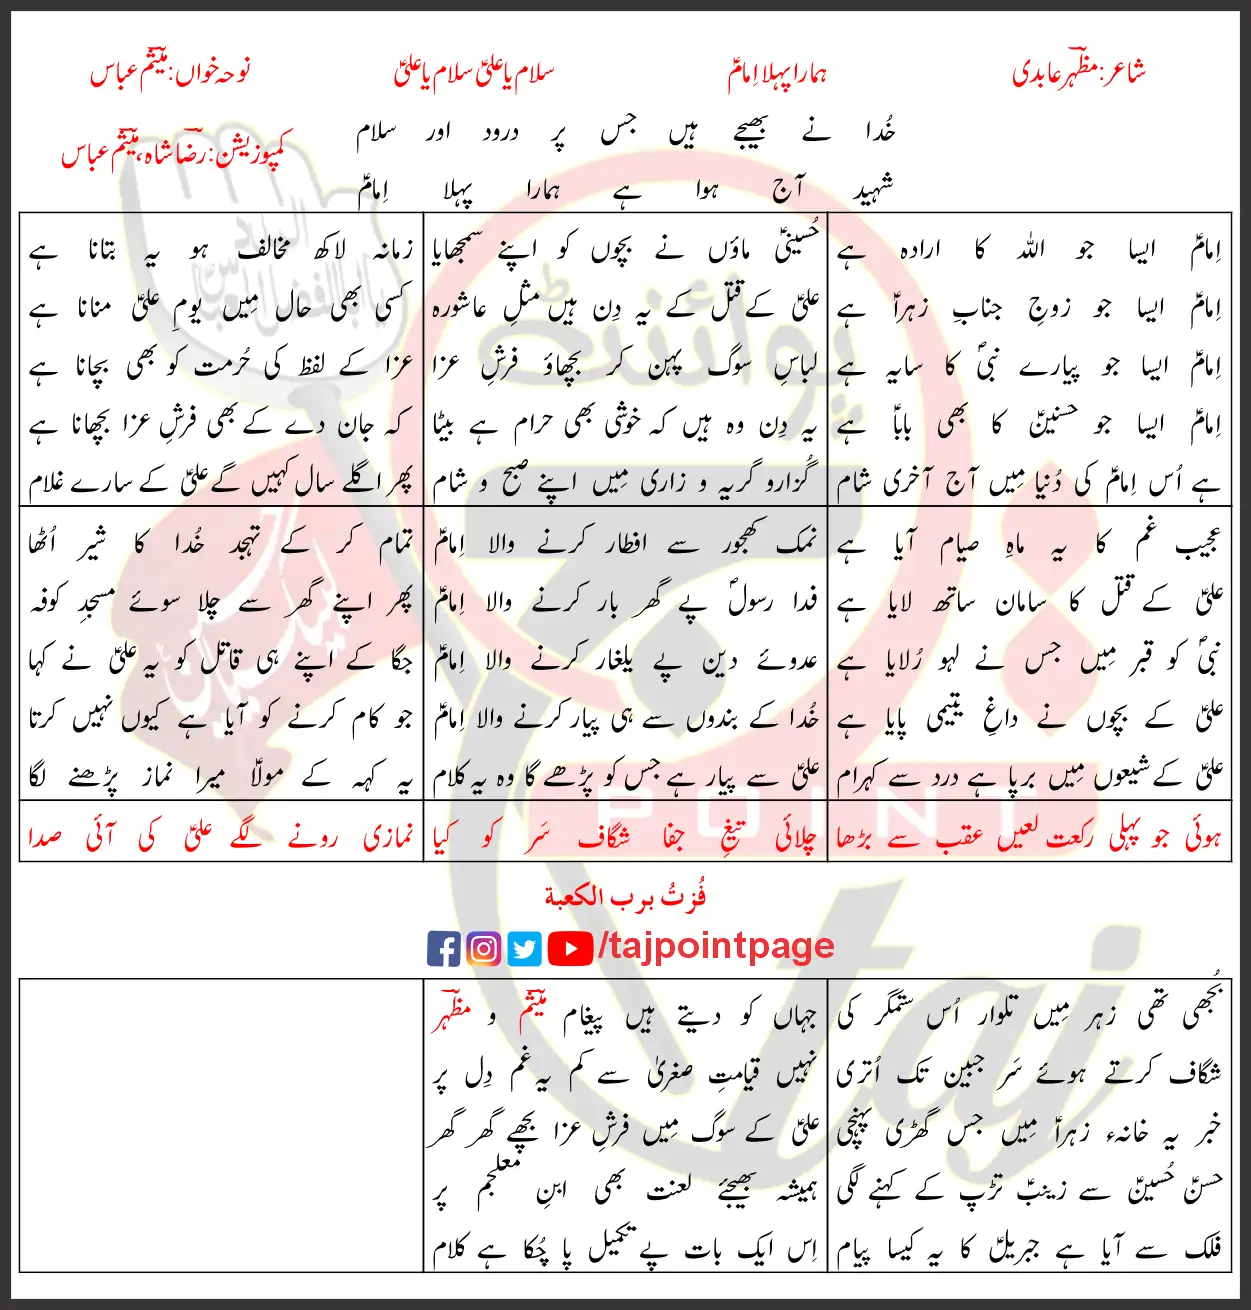 شاعر: مظہر عابدی
ہمارا پہلا اِمامؑ
سلام یا علیؑ سلام یا علیؑ
نوحہ خواں: میثم عباس
کمپوزیشن: رضا شاہ، میثم عباس
خُدا نے بھیجے ہیں جس پر درود اور سلام
شہید آج ہوا ہے ہمارا پہلا اِمامؑ
اِمامؑ ایسا جو اللہ کا ارادہ ہے
اِمامؑ ایسا جو زوجِ جنابِ زہراؑ ہے
اِمامؑ ایسا جو پیارے نبیؐ کا سایہ ہے
اِمامؑ ایسا جو حسنینؑ کا بھی باباؑ ہے
ہے اُس اِمامؑ کی دُنیا مِیں آج آخری شام
حُسینیؑ ماؤں نے بچوں کو اپنے سمجھایا
علیؑ کے قتل کے یہ دِن ہیں مثلِ عاشورہ
لباسِ سوگ پہن کر بچھاؤ فرشِ عزا
یہ دِن وہ ہیں کہ خوشی بھی حرام ہے بیٹا
گُزارو گریہ و زاری مِیں اپنے صبح و شام
زمانہ لاکھ مخالف ہو یہ بتانا ہے
کسی بھی حال مِیں یومِ علیؑ منانا ہے
عزا کے لفظ کی حُرمت کو بھی بچانا ہے
کہ جان دے کے بھی فرشِ عزا بچھانا ہے
پھر اگلے سال کہیں گے علیؑ کے سارے غلام
عجیب غم کا یہ ماہِ صیام آیا ہے
علیؑ کے قتل کا سامان ساتھ لایا ہے
نبیؐ کو قبر مِیں جس نے لہو رُلایا ہے
علیؑ کے بچوں نے داغِ یتیمی پایا ہے
علیؑ کے شیعوں مِیں برپا ہے درد سے کہرام
نمک کھجور سے افطار کرنے والا اِمامؑ
فدا رسولؐ پے گھر بار کرنے والا اِمامؑ
عدوئے دین پے یلغار کرنے والا اِمامؑ
خُدا کے بندوں سے ہی پیار کرنے والا اِمامؑ
علیؑ سے پیار ہے جس کو پڑھے گا وہ یہ کلام
تمام کر کے تہجد خُدا کا شیر اُٹھا
پھر اپنے گھر سے چلا سوئے مسجدِ کوفہ
جگا کے اپنے ہی قاتل کو یہ علیؑ نے کہا
جو کام کرنے کو آیا ہے کیوں نہیں کرتا
یہ کہہ کے مولاؑ میرا نماز پڑھنے لگا
ہوئی جو پہلی رکعت لعیں عقب سے بڑھا
چلائی تیغِ جفا شگاف سَر کو کیا
نمازی رونے لگے علیؑ کی آئی صدا
فُزتُ برب الکعبة
/tajpointpage
بُجھی تھی زہر مِیں تلوار اُس ستمگر کی
شگاف کرتے ہوئے سَر جبین تک اُتری
خبر یہ خانہء زہراؑ مِیں جس گھڑی پہنچی
حسنؑ حُسینؑ سے زینبؑ تڑپ کے کہنے لگی
فلک سے آیا ہے جبریلؑ کا یہ کیسا پیام
جہاں کو دیتے ہیں پیغام میثم و مظہر
نہیں قیامتِ صغریٰ سے کم یہ غم دِل پر
علیؑ کے سوگ مِیں فرشِ عزا بچھے گھر گھر
ہمیشہ بھیجئے لعنت بھی ابنِ معلجم پر
اِس ایک بات پے تکمیل پا چُکا ہے کلام
پوائنٹ
POINT
taj